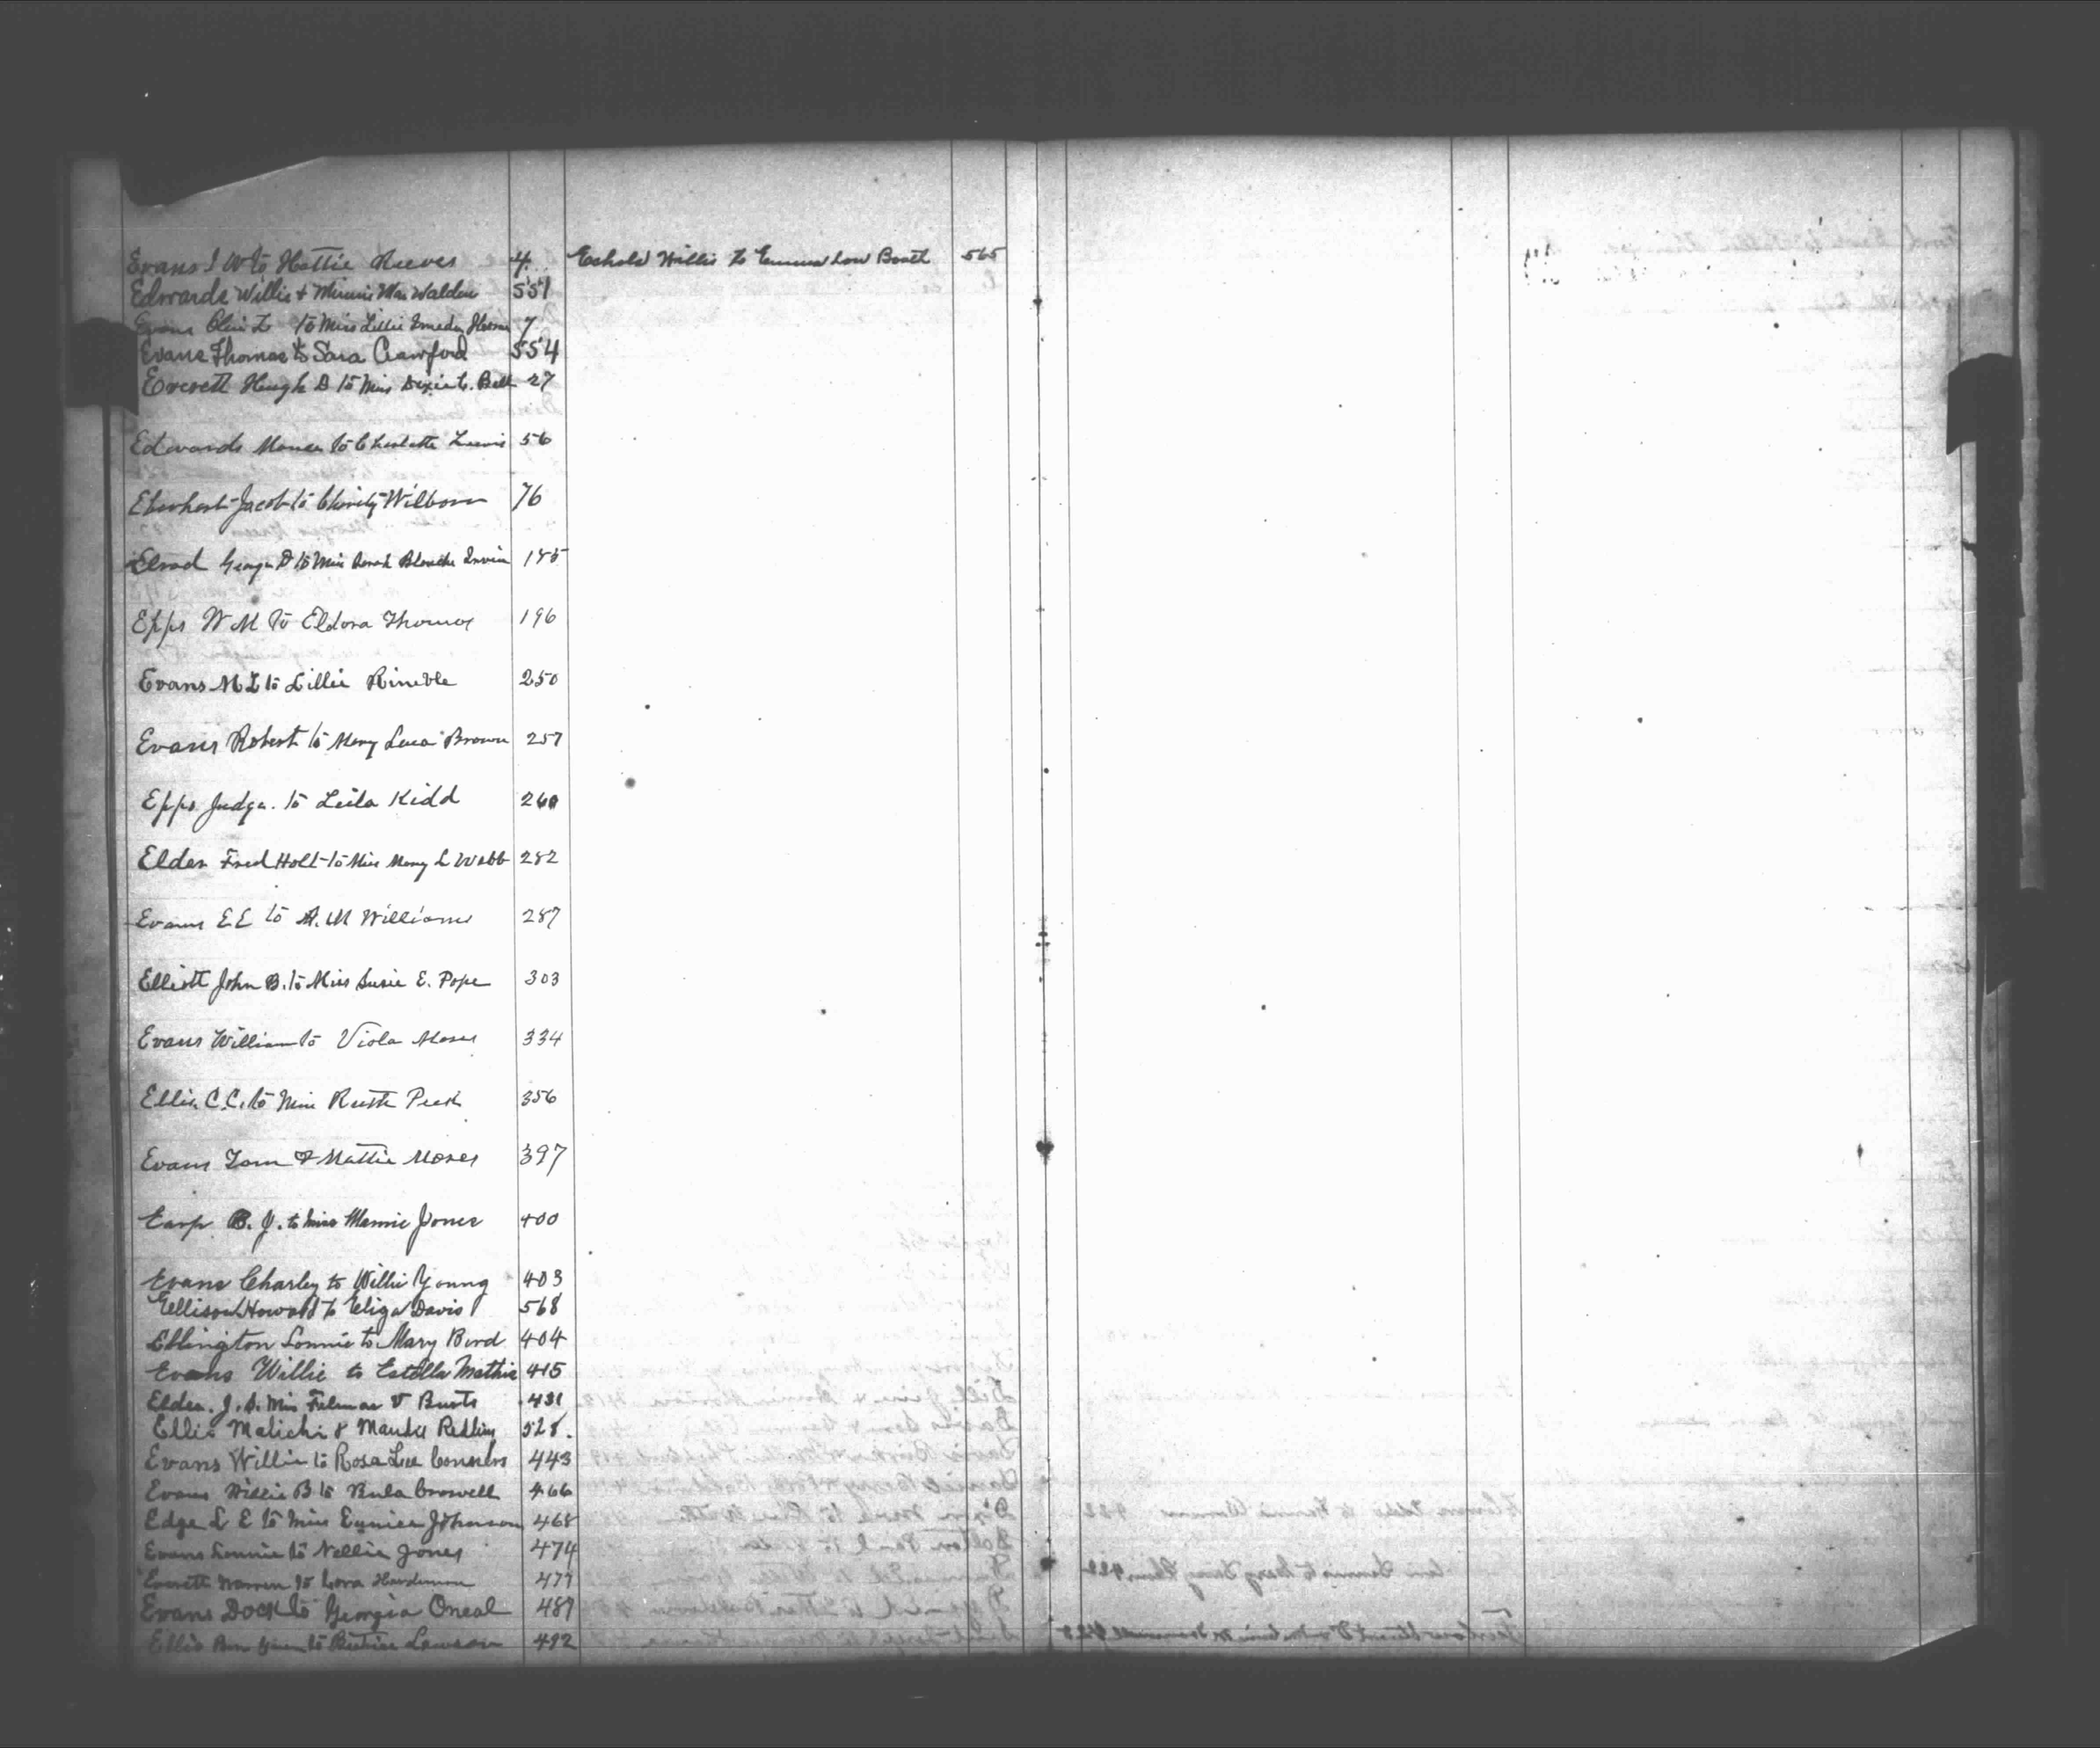 Evans J W to Hattie Reeves 4
Edwards Willie & Minnie Mae Walden 551
Evans Olin L to Miss Lillie 7
Evans Thomas to Sara Crawford 554
Everett Hugh D to Miss Dixie C. Bell 27
Edwards to Lewis 56
Eberhart Jacob to Christy Wilborn 76
Elrod George D to Miss Sarah Blanche Irvin 185
Epps W M to Eldora Thomas 196
Evans M L to Lillie 250
Evans Robert to Mary Lena Brown 257
Epps Judge to Leila Kidd 260
Elder Fred Holt to Miss Mary L Webb 282
Evans E E to A. M Williams 287
Elliott John B. to Miss Susie E. Pope 303
Evans William to Viola Moses 334
Ellis C. C. to Miss Ruth Peek 356
Evans Tom & Mattie Moses 397
Earp B. J. to Miss Mamie Jones 400
Evans Charley to Willie Young 403
Ellison Howard to Eliga Davis 568
Ellington Lonnie to Mary Burd 404
Evans Willie to Estella Mathis 415
Elder. J. S. Miss V Busts 431
Ellis Malichi & 528.
Evans Willie to Rosa Lee 443
Evans Willie B to Beula Crowell 466
Edge L E to Miss Eunice Johnson 468
Evans Lonnie to Nellie Jones 474
Everett Warren to Lora Hardeman 477
Evans Dock to Georgia Oneal 489
Ellis Ben to Lawson 492
Echols Willis to Emma Lou Booth 565